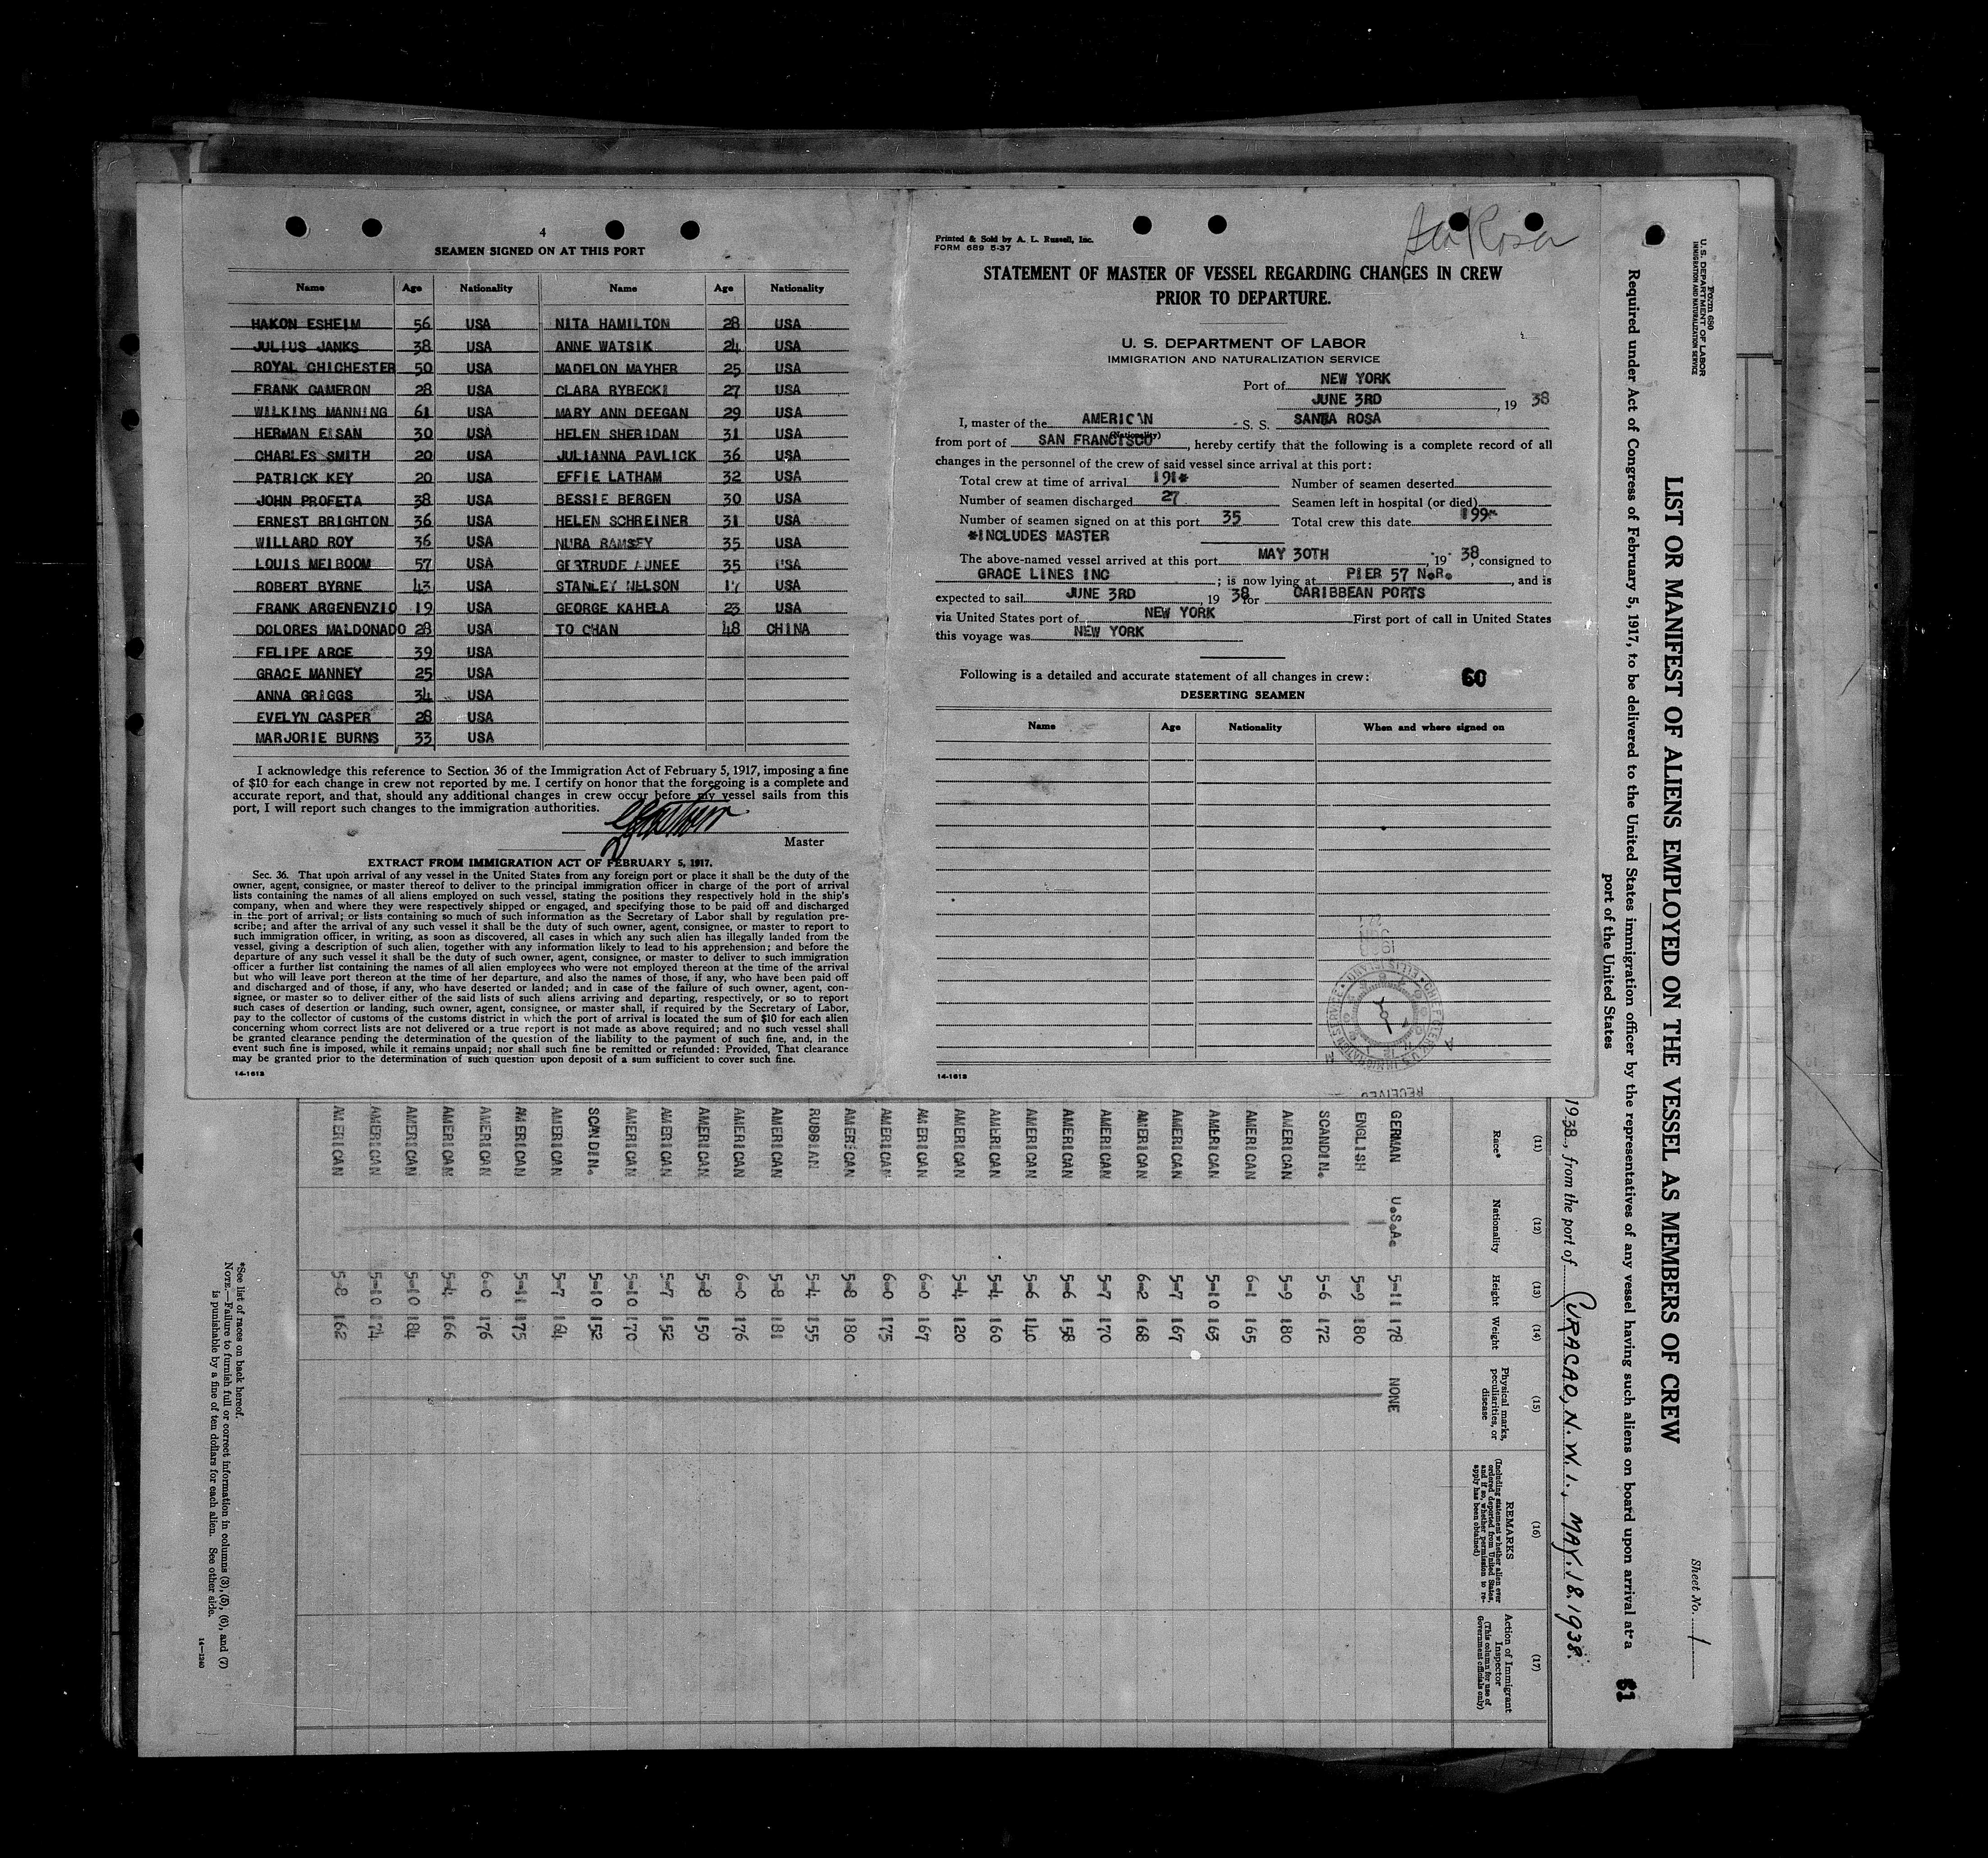 4
SEAMEN SIGNED ON AT THIS PORT
Name Age Nationality Name Age Nationality
HAKON ESHEIM 56 USA NITA HAMILTON 28 USA
JULIUS JANKS 38 USA ANNE WATSIK 24 USA
ROYAL CHICHESTER 50 USA MADELON MAYHER 25 USA
FRANK CAMERON 28 USA CLARA RYBECKI 27 USA
WILKINS MANNING 61 USA MARY ANN DEEGAN 29 USA
HERMAN EISAN 30 USA HELEN SHERIDAN 31 USA
CHARLES SMITH 20 USA JULIANNA PAVLICK 36 USA
PATRICK KEY 20 USA EFFIE LATHAM 32 USA
JOHN PROFETA 38 USA BESSIE BERGEN 30 USA
ERNEST BRIGHTON 36 USA HELEN SCHREINER 31 USA
WILLARD ROY 36 USA NURA RAMSEY 35 USA
LOUIS MEIBOOM 57 USA GERTRUDE AUNEE 35 USA
ROBERT BYRNE 43 USA STANLEY NELSON 17 USA
FRANK ARGENENZIO 19 USA GEORGE KAHELA 23 USA
DOLORES MALDONADO 28 USA TO CHAN 48 CHINA
FELIPE ARCE 39 USA
GRACE MANNEY 25 USA
ANNA GRIGGS 34 USA
EVELYN CASPER 28 USA
MARJORIE BURNS 33 USA
I acknowledge this reference to Section 36 of the Immigration Act of February 5, 1917, imposing a fine
of $10 for each change in crew not reported by me. I certify on honor that the foregoing is a complete and
accurate report, and that, should any additional changes in crew occur before my vessel sails from this
port, I will report such changes to the immigration authorities.
Master
EXTRACT FROM IMMIGRATION ACT OF FEBRUARY 5, 1917.
Sec. 36. That upon arrival of any vessel in the United States from any foreign port or place it shall be the duty of the
owner, agent, consignee, or master thereof to deliver to the principal immigration officer in charge of the port of arrival
lists containing the names of all aliens employed on such vessel, stating the positions they respectively hold in the ship's
company, when and where they were respectively shipped or engaged, and specifying those to be paid off and discharged
in the port of arrival; or lists containing so much of such information as the Secretary of Labor shall by regulation pre-
scribe; and after the arrival of any such vessel it shall be the duty of such owner, agent, consignee, or master to report to
such immigration officer, in writing, as soon as discovered, all cases in which any such alien has illegally landed from the
vessel, giving a description of such alien, together with any information likely to lead to his apprehension; and before the
departure of any such vessel it shall be the duty of such owner, agent, consignee, or master to deliver to such immigration
officer a further list containing the names of all alien employees who were not employed thereon at the time of the arrival
but who will leave port thereon at the time of her departure, and also the names of those, if any, who have been paid off
and discharged and of those, if any, who have deserted or landed; and in case of the failure of such owner, agent, con-
signee, or master so to deliver either of the said lists of such aliens arriving and departing, respectively, or so to report
such cases of desertion or landing, such owner, agent, consignee, or master shall, if required by the Secretary of Labor,
pay to the collector of customs of the customs district in which the port of arrival is located the sum of $10 for each alien
concerning whom correct lists are not delivered or a true report is not made as above required; and no such vessel shall
be granted clearance pending the determination of the question of the liability to the payment of such fine, and, in the
event such fine is imposed, while it remains unpaid; nor shall such fine be remitted or refunded: Provided, That clearance
may be granted prior to the determination of such question upon deposit of a sum sufficient to cover such fine.
14-1613
Printed & Sold by A. L. Russell, Inc.
FORM 689 5-37
STATEMENT OF MASTER OF VESSEL REGARDING CHANGES IN CREW
PRIOR TO DEPARTURE.
U. S. DEPARTMENT OF LABOR
IMMIGRATION AND NATURALIZATION SERVICE
Port of NEW YORK
JUNE 3RD, 19 38
I, master of the AMERICAN S. S. SANTA ROSA
(Nationality)
from port of SAN FRANCISCO, hereby certify that the following is a complete record of all
changes in the personnel of the crew of said vessel since arrival at this port:
Total crew at time of arrival 191* Number of seamen deserted
Number of seamen discharged 27 Seamen left in hospital (or died)
Number of seamen signed on at this port 35 Total crew this date 199*
*INCLUDES MASTER
The above-named vessel arrived at this port MAY 30TH, 19 38, consigned to
GRACE LINES INC; is now lying at PIER 57 N.R., and is
expected to sail JUNE 3RD, 19 38 for CARIBBEAN PORTS
via United States port of NEW YORK First port of call in United States
this voyage was NEW YORK
Following is a detailed and accurate statement of all changes in crew: 60
DESERTING SEAMEN
Name Age Nationality When and where signed on
RECEIVED
14-1613
Form 680
U. S. DEPARTMENT OF LABOR
IMMIGRATION AND NATURALIZATION SERVICE
Sheet No. 1
LIST OR MANIFEST OF ALIENS EMPLOYED ON THE VESSEL AS MEMBERS OF CREW
Required under Act of Congress of February 5, 1917, to be delivered to the United States immigration officer by the representatives of any vessel having such aliens on board upon arrival at a
port of the United States
61
1938, from the port of CURACAO, N.W.I., MAY. 18. 1938.
(11) (12) (13) (14) (15) (16) (17)
Race* Nationality Height Weight Physical marks, peculiarities, or disease REMARKS (Including statement whether alien ever ordered deported from United States, and if so, whether permission to re-apply has been obtained) Action of Immigrant Inspector (This column for use of Government officials only)
GERMAN U.S.A. 5-11 178 NONE
ENGLISH 5-9 180
SCANDIN. 5-6 172
AMERICAN 5-9 180
AMERICAN 6-1 165
AMERICAN 5-10 163
AMERICAN 5-7 167
AMERICAN 6-2 168
AMERICAN 5-7 170
AMERICAN 5-6 158
AMERICAN 5-6 140
AMERICAN 5-4 160
AMERICAN 5-4 120
AMERICAN 6-0 167
AMERICAN 6-0 175
AMERICAN 5-8 180
RUSSIAN 5-4 155
AMERICAN 5-8 181
AMERICAN 6-0 176
AMERICAN 5-8 150
AMERICAN 5-7 152
AMERICAN 5-10 170
SCANDIN. 5-10 152
AMERICAN 5-7 164
AMERICAN 5-11 175
AMERICAN 6-0 176
AMERICAN 5-4 166
AMERICAN 5-10 184
AMERICAN 5-10 174
AMERICAN 5-8 162
*See list of races on back hereof.
NOTE.—Failure to furnish full or correct information in columns (3), (5), (6), and (7)
is punishable by a fine of ten dollars for each alien. See other side.
14-1240